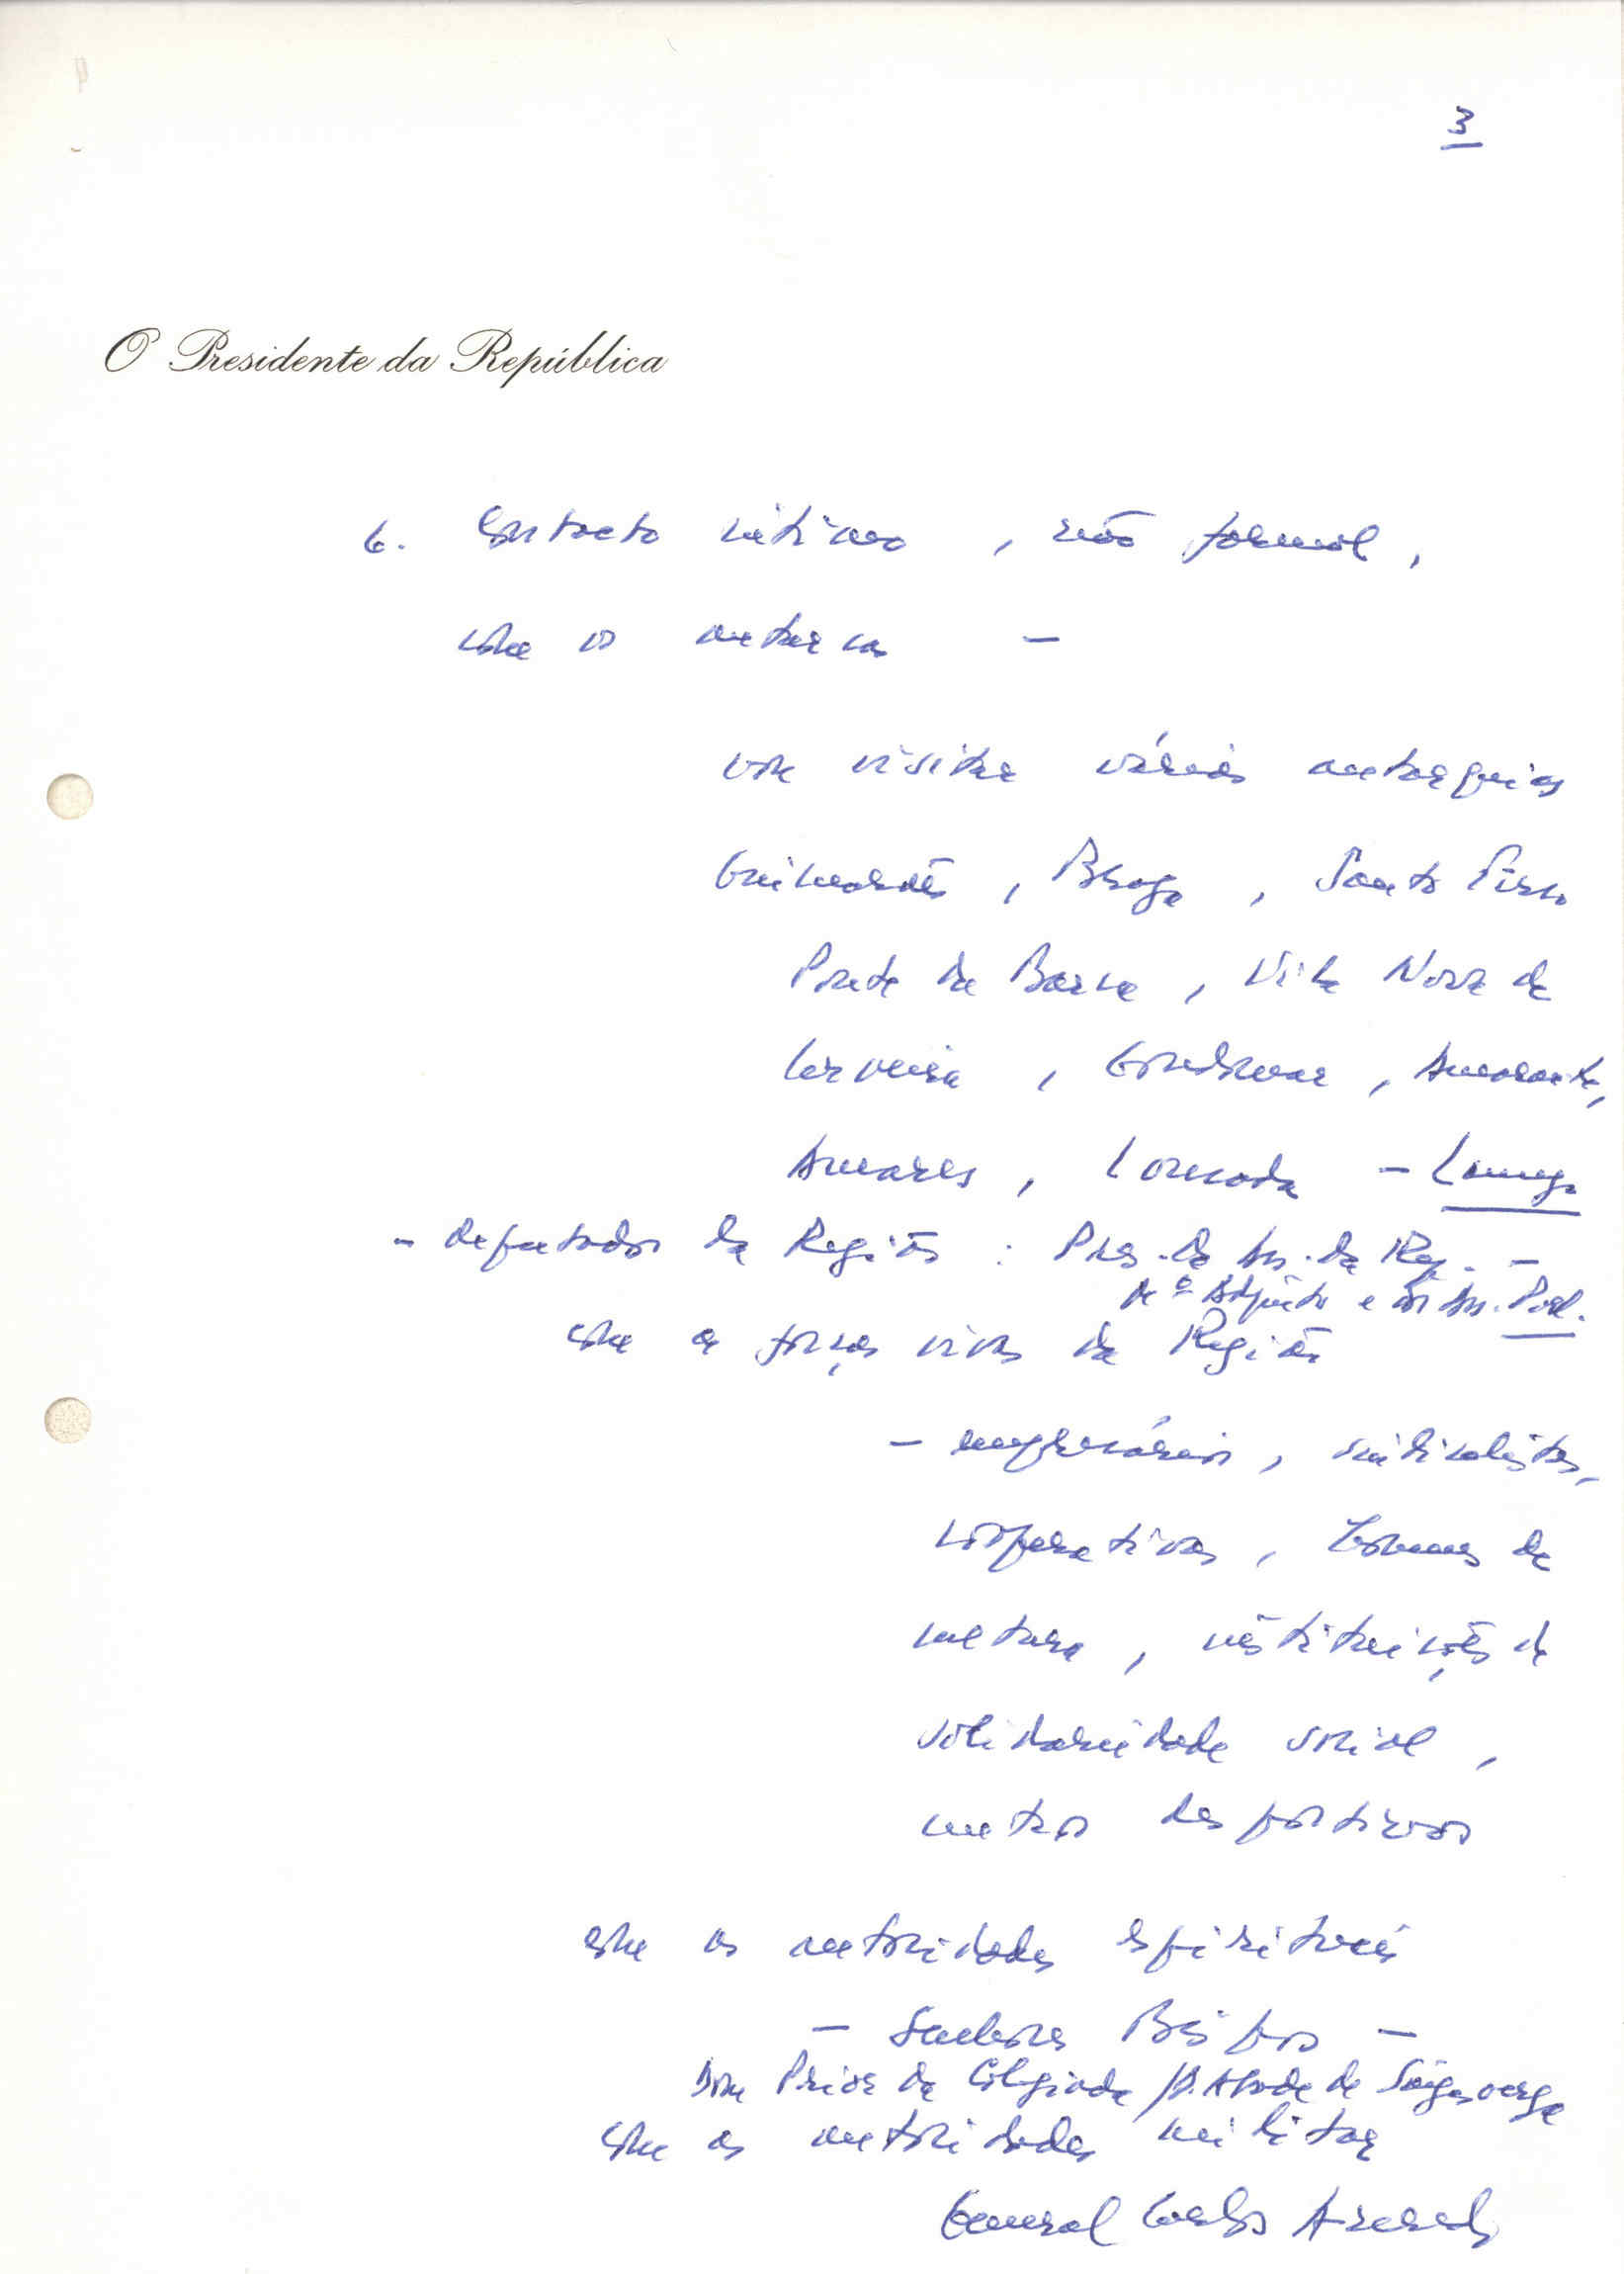 3
O Presidente da República
6. Contacto íntimo, não formal,
com os autarcas —
vou visitar várias autarquias
Guimarães, Braga, Santo Tirso
Ponte da Barca, Vila Nova de
Cerveira, Gondomar, Amarante,
Amares, Lousada – Lamego
– deputados da Região : Pres. da As. da Rep. –
Adjunto e os As. Parl.
com as forças vivas da Região
– empresários, sindicalistas,
cooperativas, homens de
cultura, instituições de
solidariedade social,
centros desportivos
com as autoridades espirituais
– Senhores Bispos –
Dom Prior da Colegiada / D. Abade de Singeverga
com as autoridades militar
General Carlos Azeredo